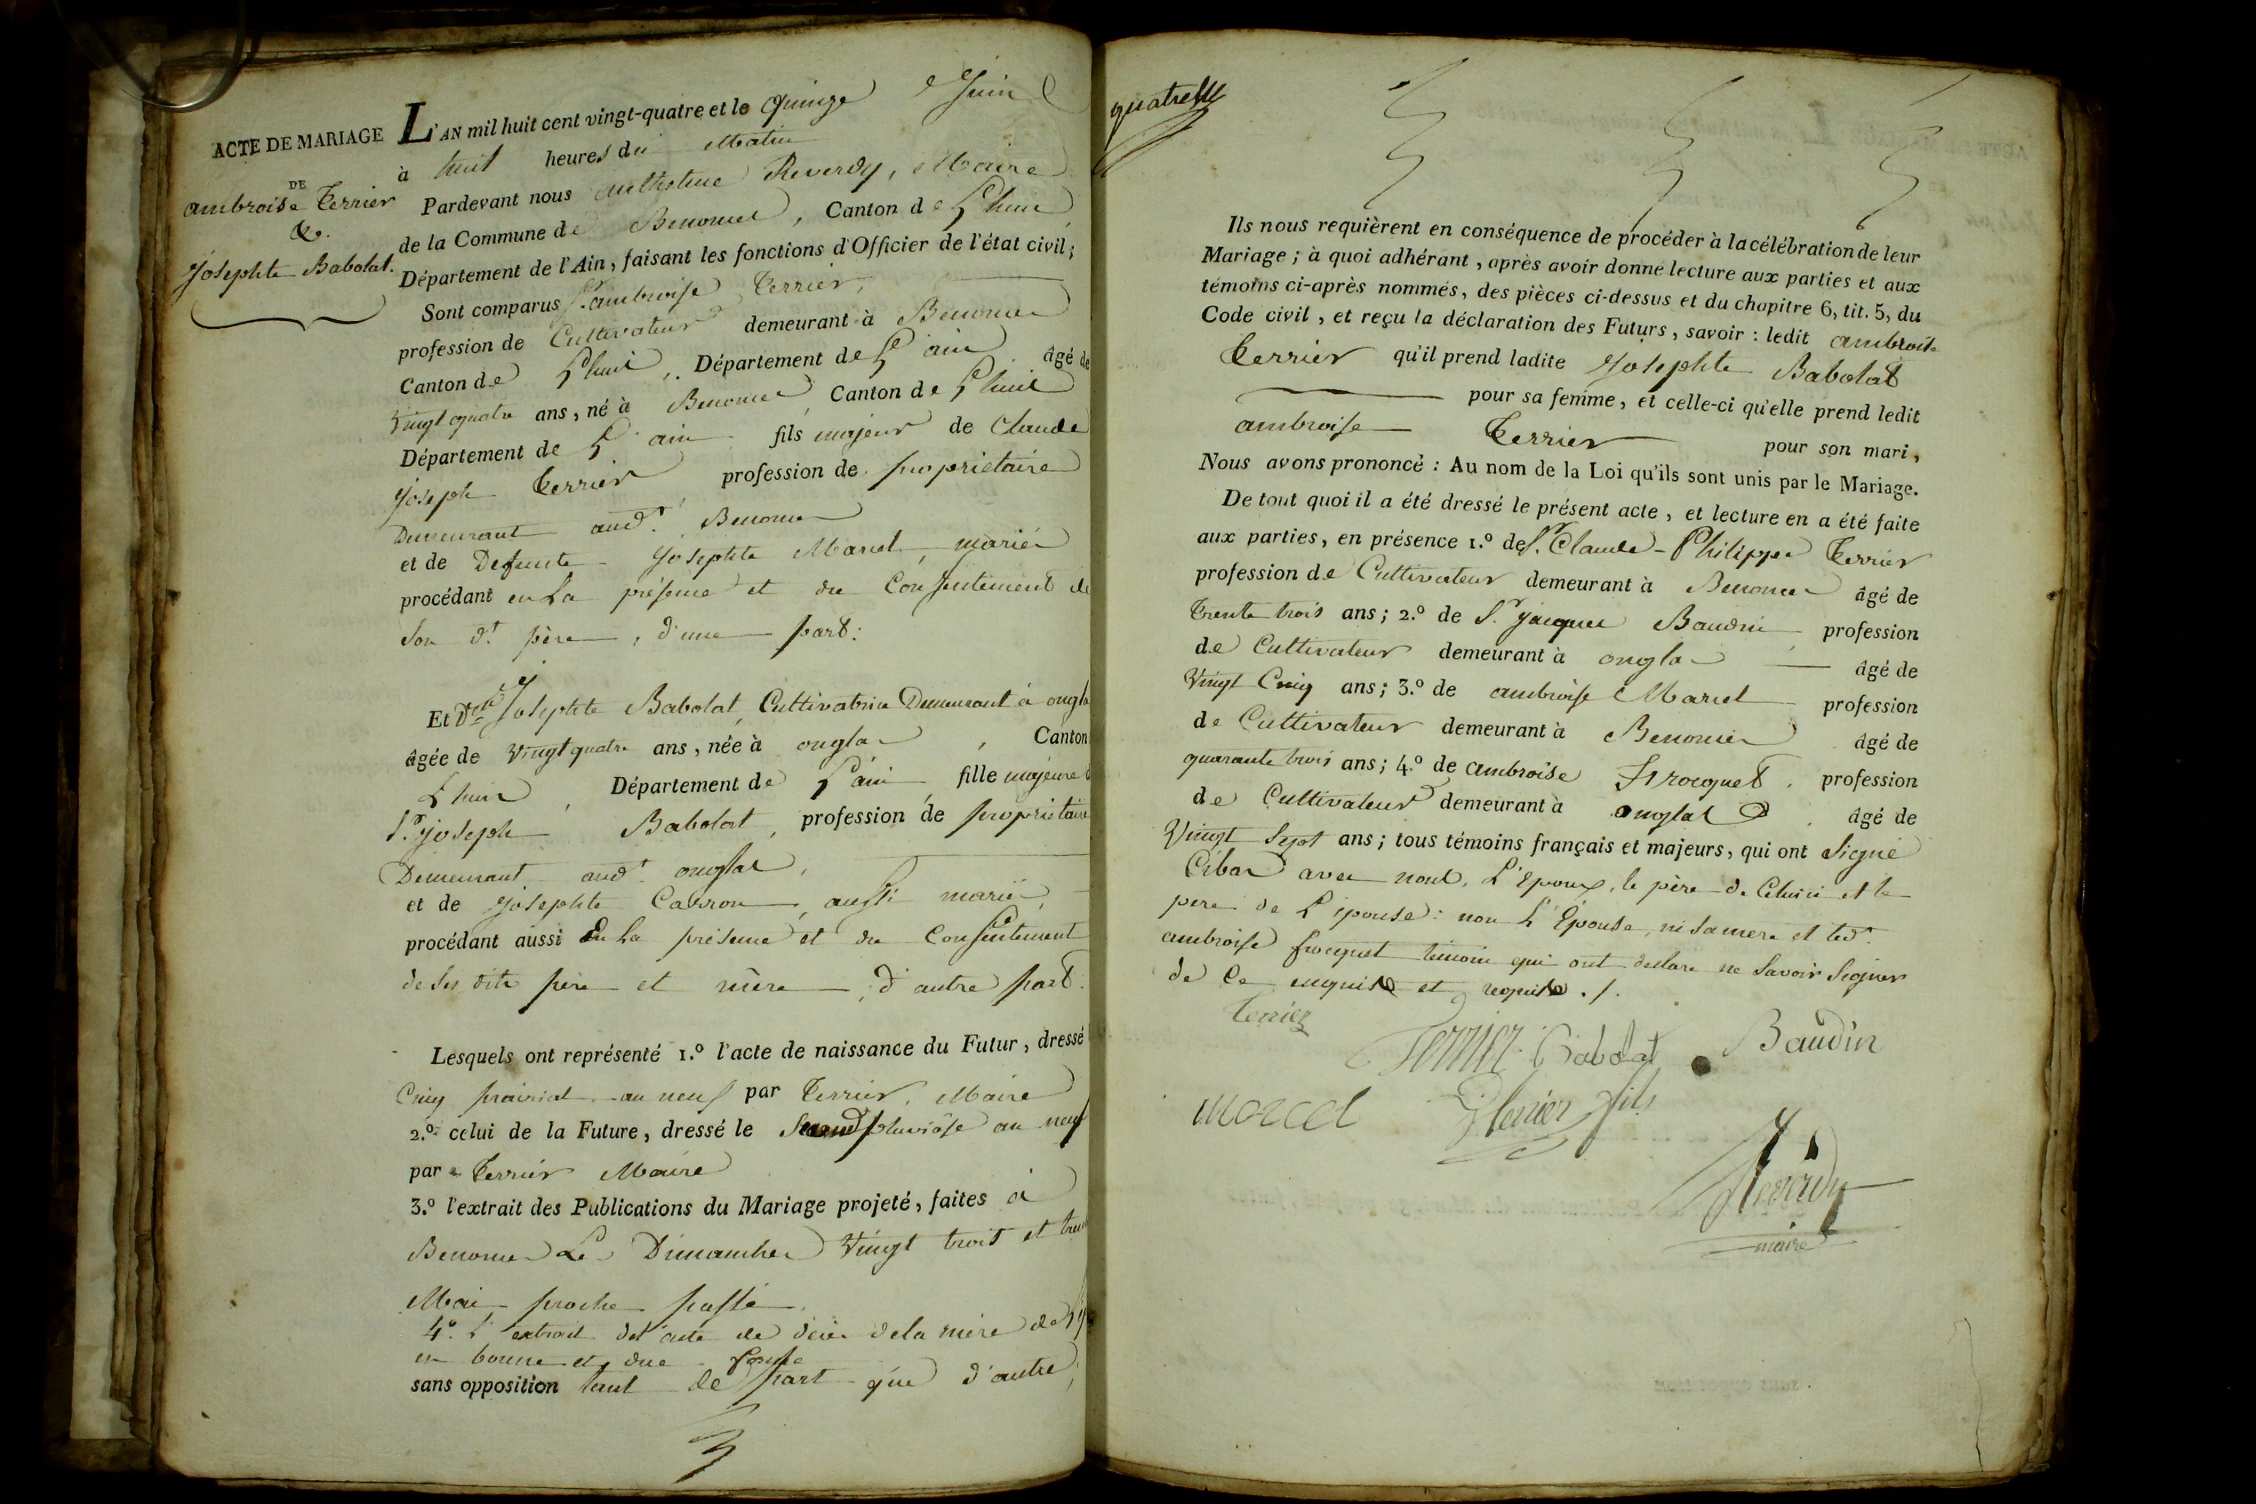 ACTE DE MARIAGE
DE
ambroise Terrier
&.
Josephte Babolat.
L'AN mil huit cent vingt-quatre et le quinze Juin
à huit heures du Matin
Pardevant nous Anthelme Reverdy, Maire
de la Commune de Benonce, Canton de Lhuis
Département de l'Ain, faisant les fonctions d'Officier de l'état civil;
Sont comparus Sr. ambroise Terrier,
profession de Cultivateur demeurant à Benonce
Canton de Lhuis, Département de L'ain âgé de
vingt quatre ans, né à Benonce, Canton de Lhuis
Département de L'ain fils majeur de Claude
Joseph Terrier profession de proprietaire
Demeurant aud. Benonce
et de Defunte Josephte Marcel, mariés
procédant en La présence et du Consentement de
Son dt. père, d'une part:
Et Dlle Josephte Babolat, Cultivatrice Demeurant à ongla
âgée de vingt quatre ans, née à onglas, Canton
Lhuis, Département de L'ain, fille majeure
Sr. joseph Babolat, profession de proprietaire
Demeurant aud. onglas,
et de josephte Carron, aussi mariés,
procédant aussi En La présence et du Consentement
de ses dits père et mère, d'autre part.
Lesquels ont représenté 1.º l'acte de naissance du Futur, dressé
Cinq prairial an neuf par Terrier, Maire
2.º celui de la Future, dressé le Second pluviôse an neuf
par Terrier Maire
3.º l'extrait des Publications du Mariage projeté, faites à
Benonce Les Dimanches Vingt trois et trente
Mai proche passé.
4.º L'extrait de l'acte de décès de la mère de
en bonne et due forme
sans opposition tant de part que d'autre;
quatre
Ils nous requièrent en conséquence de procéder à la célébration de leur
Mariage; à quoi adhérant, après avoir donné lecture aux parties et aux
témoins ci-après nommés, des pièces ci-dessus et du chapitre 6, tit. 5, du
Code civil, et reçu la déclaration des Futurs, savoir: ledit ambroise
Terrier qu'il prend ladite Josephte Babolat
pour sa femme, et celle-ci qu'elle prend ledit
ambroise Terrier pour son mari,
Nous avons prononcé: Au nom de la Loi qu'ils sont unis par le Mariage.
De tout quoi il a été dressé le présent acte, et lecture en a été faite
aux parties, en présence 1.º de Sr. Claude-Philippe Terrier
profession de Cultivateur demeurant à Benonce âgé de
Trente trois ans; 2.º de Sr. jacques Baudin, profession
de Cultivateur demeurant à onglas âgé de
Vingt Cinq ans; 3.º de ambroise Marcel profession
de Cultivateur demeurant à Benonce âgé de
quarante trois ans; 4.º de ambroise Frocquet, profession
de Cultivateur demeurant à onglas âgé de
Vingt Sept ans; tous témoins français et majeurs, qui ont Signé
Cibas avec nous, L'Epoux, le père de Celuici et le
pere de L'épouse: non L'Épouse, ni sa mere et led.
ambroise frocquet témoin qui ont declare ne Savoir Signer
de Ce enquis et requis./.
Terrier
Terrier Babolat Baudin
marcel Terrier fils
Reverdy
maire